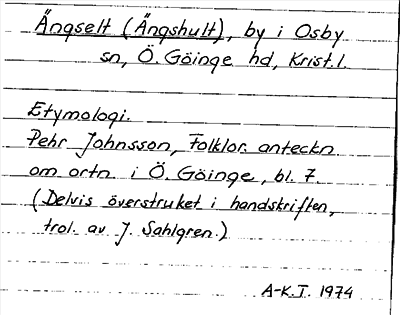 Ängselt (Ängshult), by i Osby
sn, Ö. Göinge hd, Krist. l.
Etymologi.
Pehr Johnsson, Folklor. anteckn
om ortn i Ö. Göinge, bl. 7.
(Delvis överstruket i handskriften,
trol. av J. Sahlgren.)
A-K.T. 1974